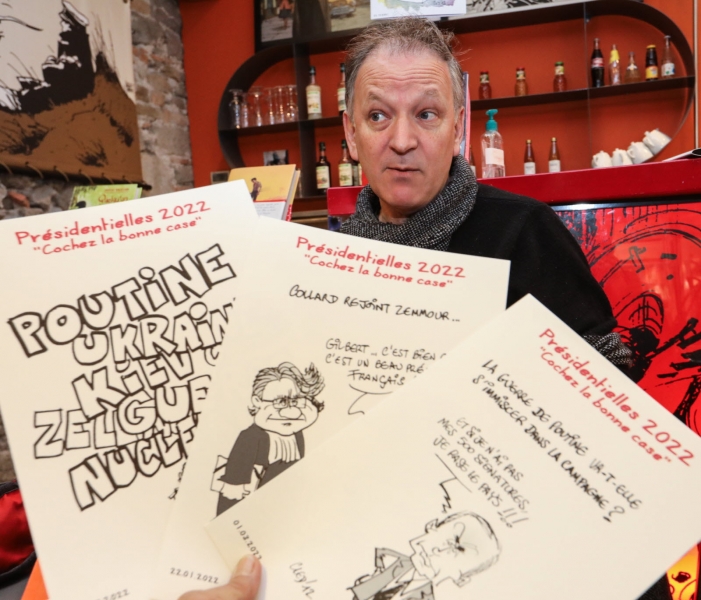 Présidentielles 2022
"Cochez la bonne case"
POUTINE
UKRAIN
KIEV
NUCLÉ
22.01.2022
Présidentielles 2022
"Cochez la bonne case"
COLLARD REJOINT ZEMMOUR...
GILBERT... C'EST BIEN
C'EST UN BEAU PRÉ
FRANÇAIS
01.02.2022
Présidentielles 2022
"Cochez la bonne case"
LA GUERRE DE POUTINE VA-T-ELLE
S'IMMISCER DANS LA CAMPAGNE ?
ET SI JE N'AI PAS
MES 500 SIGNATURES,
JE RASE LE PAYS !!!